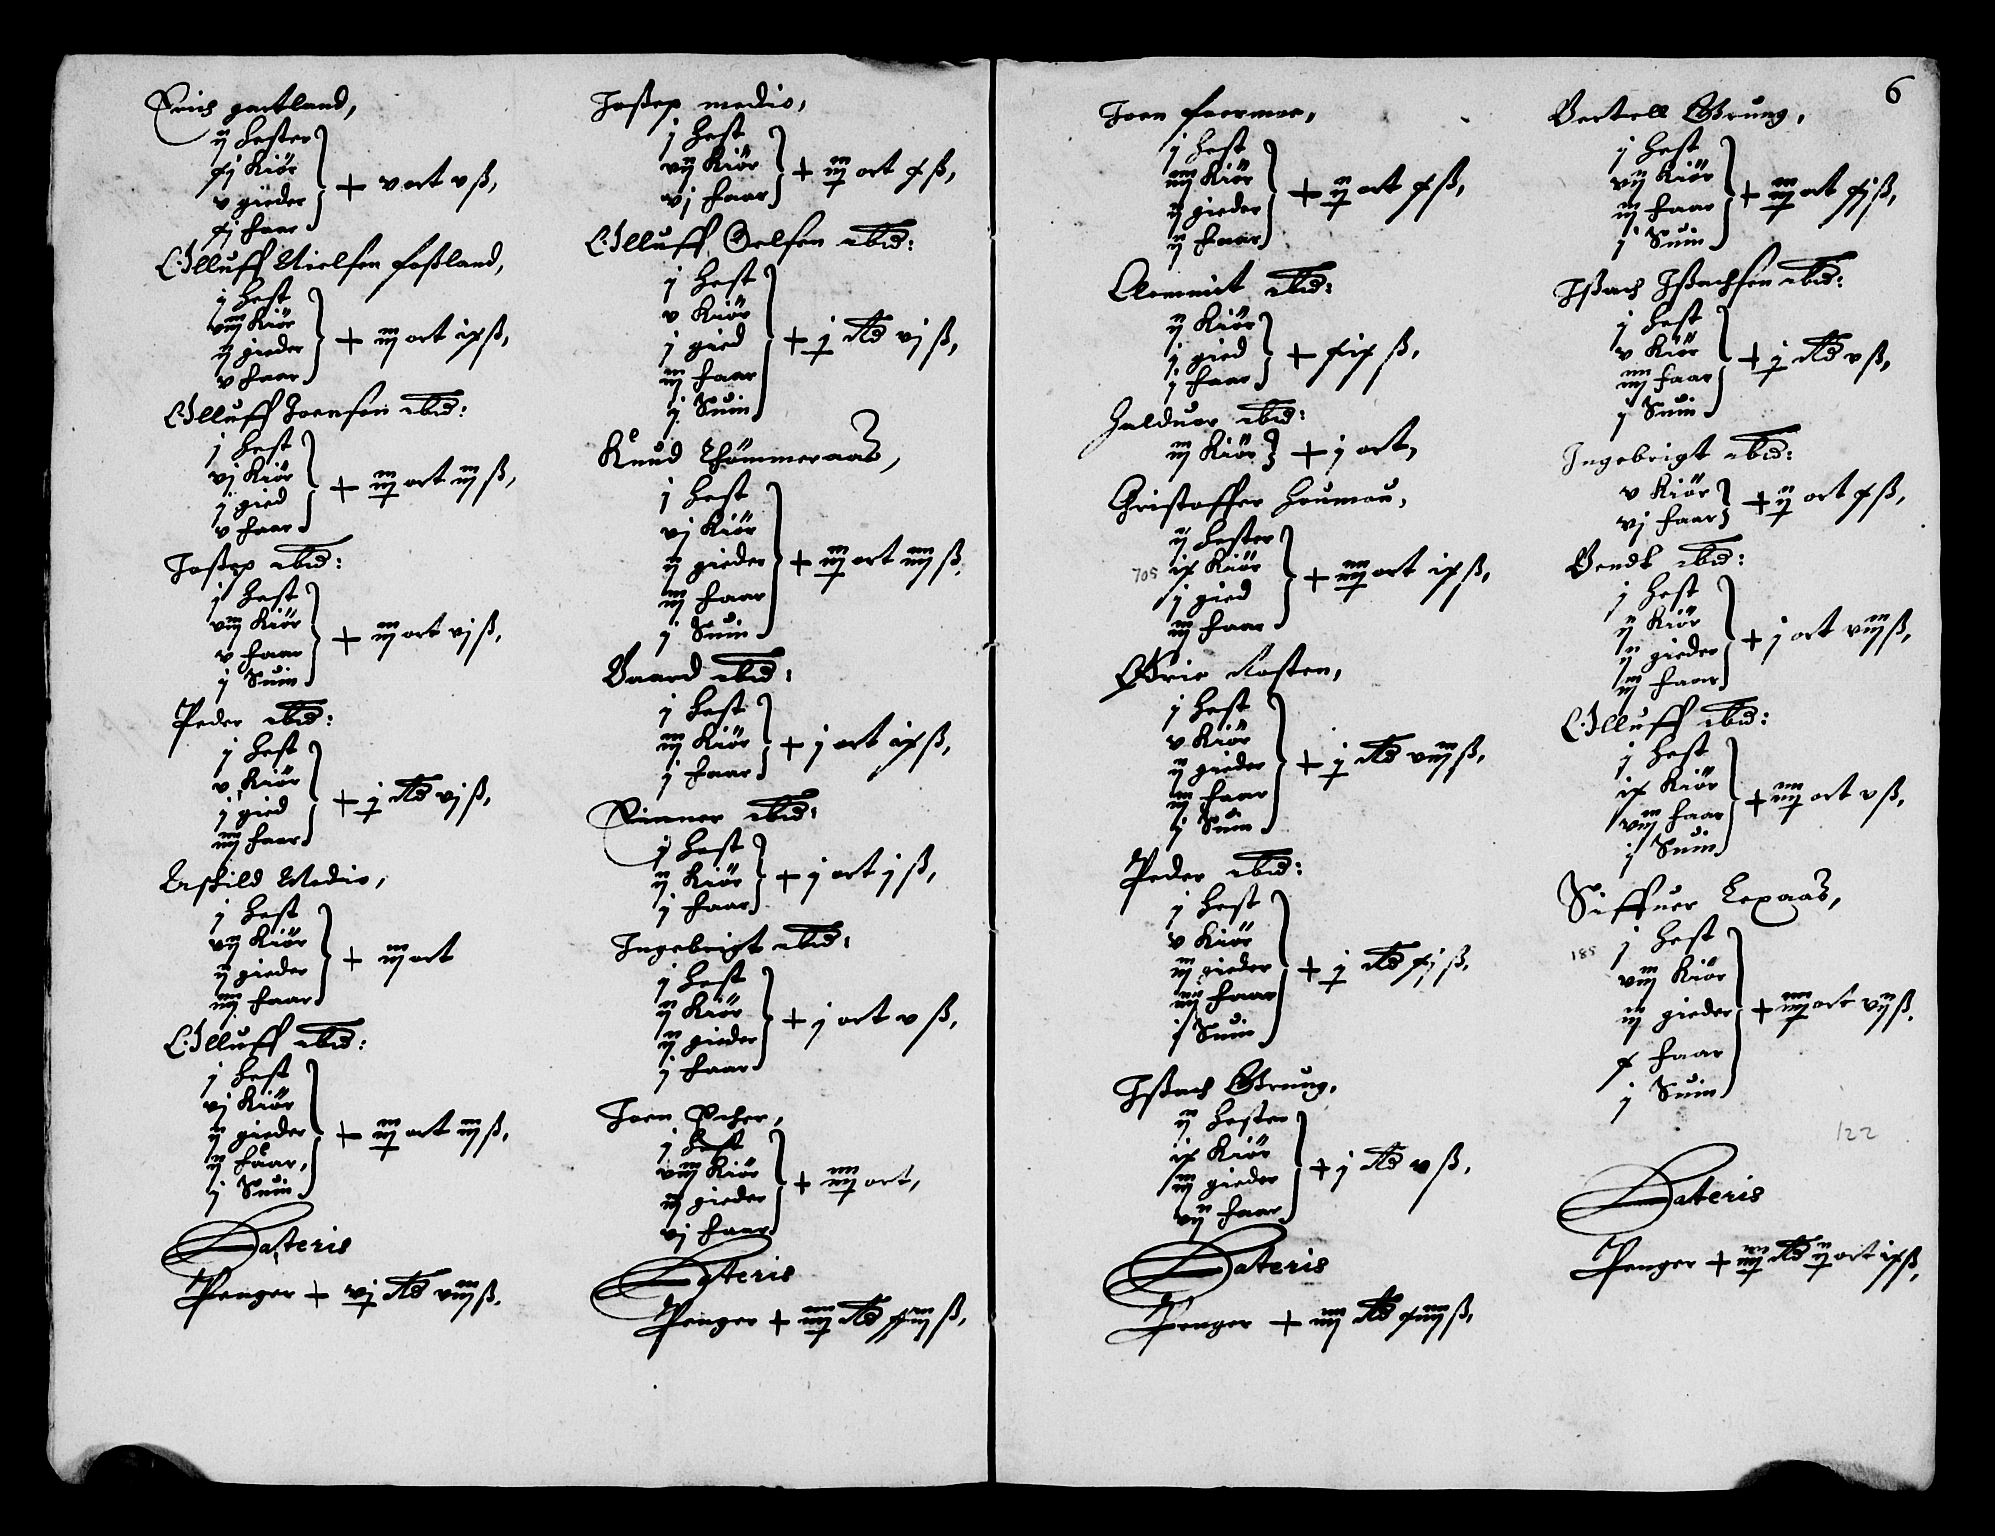 Erich gartland,
ij hester
xj Kiør
v gieder
xj faar
+ v ort v ß,
Olluff Nielsen foßland,
j hest
viij Kiør
ij gieder
v faar
+ iij ort ix ß,
Olluff Joensen ibid:
j hest
vj Kiør
j gied
v faar
+ iij ort iij ß,
Joßep ibid:
j hest
viij Kiør
v faar
j Suin
+ iij ort vj ß,
Peder ibid:
j hest
v Kiør
j gied
iiij faar
+ j Rd vj ß,
Aschild Medio,
j hest
vij Kiør
ij gieder
iiij faar
+ iij ort
Olluff ibid:
j hest
vj Kiør
ij gieder
ij faar,
j Suin
+ iij ort iiij ß,
Lateris
Penger + vj Rd viij ß.
Joßep medio,
j hest
vij Kiør
vj faar
+ iij ort x ß,
Olluff Oelsen ibid:
j hest
v Kiør
j gied
iij faar
j Suin
+ j Rd vj ß,
Knud Thømmeraas,
j hest
vj Kiør
ij gieder
iij faar
j Suin
+ iij ort iiij ß.
Baard ibid:
j hest
iij Kiør
j faar
+ j ort ix ß,
Simmer ibid:
j hest
ij Kiør
j faar
+ j ort j ß,
Ingebrigt ibid:
j hest
ij Kiør
ij gieder
j faar
+ j ort v ß,
Joen Ecker,
j hest
viij Kiør
iij gieder
vj faar
+ iiij ort,
Lateris
Penger + iiij Rd xiij ß,
6
Joen faermoe,
j hest
iiij Kiør
ij gieder
ij faar
+ ij ort x ß,
Clemmit ibid:
ij Kiør
j gied
j faar
+ xix ß,
Halduor ibid:
iij Kiør
+ j ort,
Christoffer houmou,
ij hester
ix Kiør
j gied
iij faar
705
+ iiij ort ix ß,
Erie Kosten,
j hest
v Kiør
ij gieder
iij faar
j Suin
+ j Rd viij ß,
Peder ibid:
j hest
v Kiør
iij gieder
iiij faar
j Suin
+ j Rd xj ß,
Jßach Grung,
ij hester
ix Kiør
iij gieder
vij faar
+ j Rd v ß,
Lateris
Penger + iiij Rd xiiij ß,
Bertell Grung,
j hest
vij Kiør
iij faar
j Suin
+ iij ort xj ß,
Jßach Jßachsen ibid:
j hest
v Kiør
iiij faar
j Suin
+ j Rd v ß,
Ingebrigt ibid:
v Kiør
vj faar
+ ij ort x ß,
Bendt ibid:
j hest
ij Kiør
ij gieder
iij faar
+ j ort viij ß,
Olluff ibid:
j hest
ix Kiør
viij faar
j Suin
+ iiij ort v ß,
Siffuer Lexaas,
185
j hest
viij Kiør
iij gieder
x faar
j Suin
+ iiij ort vij ß.
122
Lateris
Penger + iiij Rd ij ort ix ß,